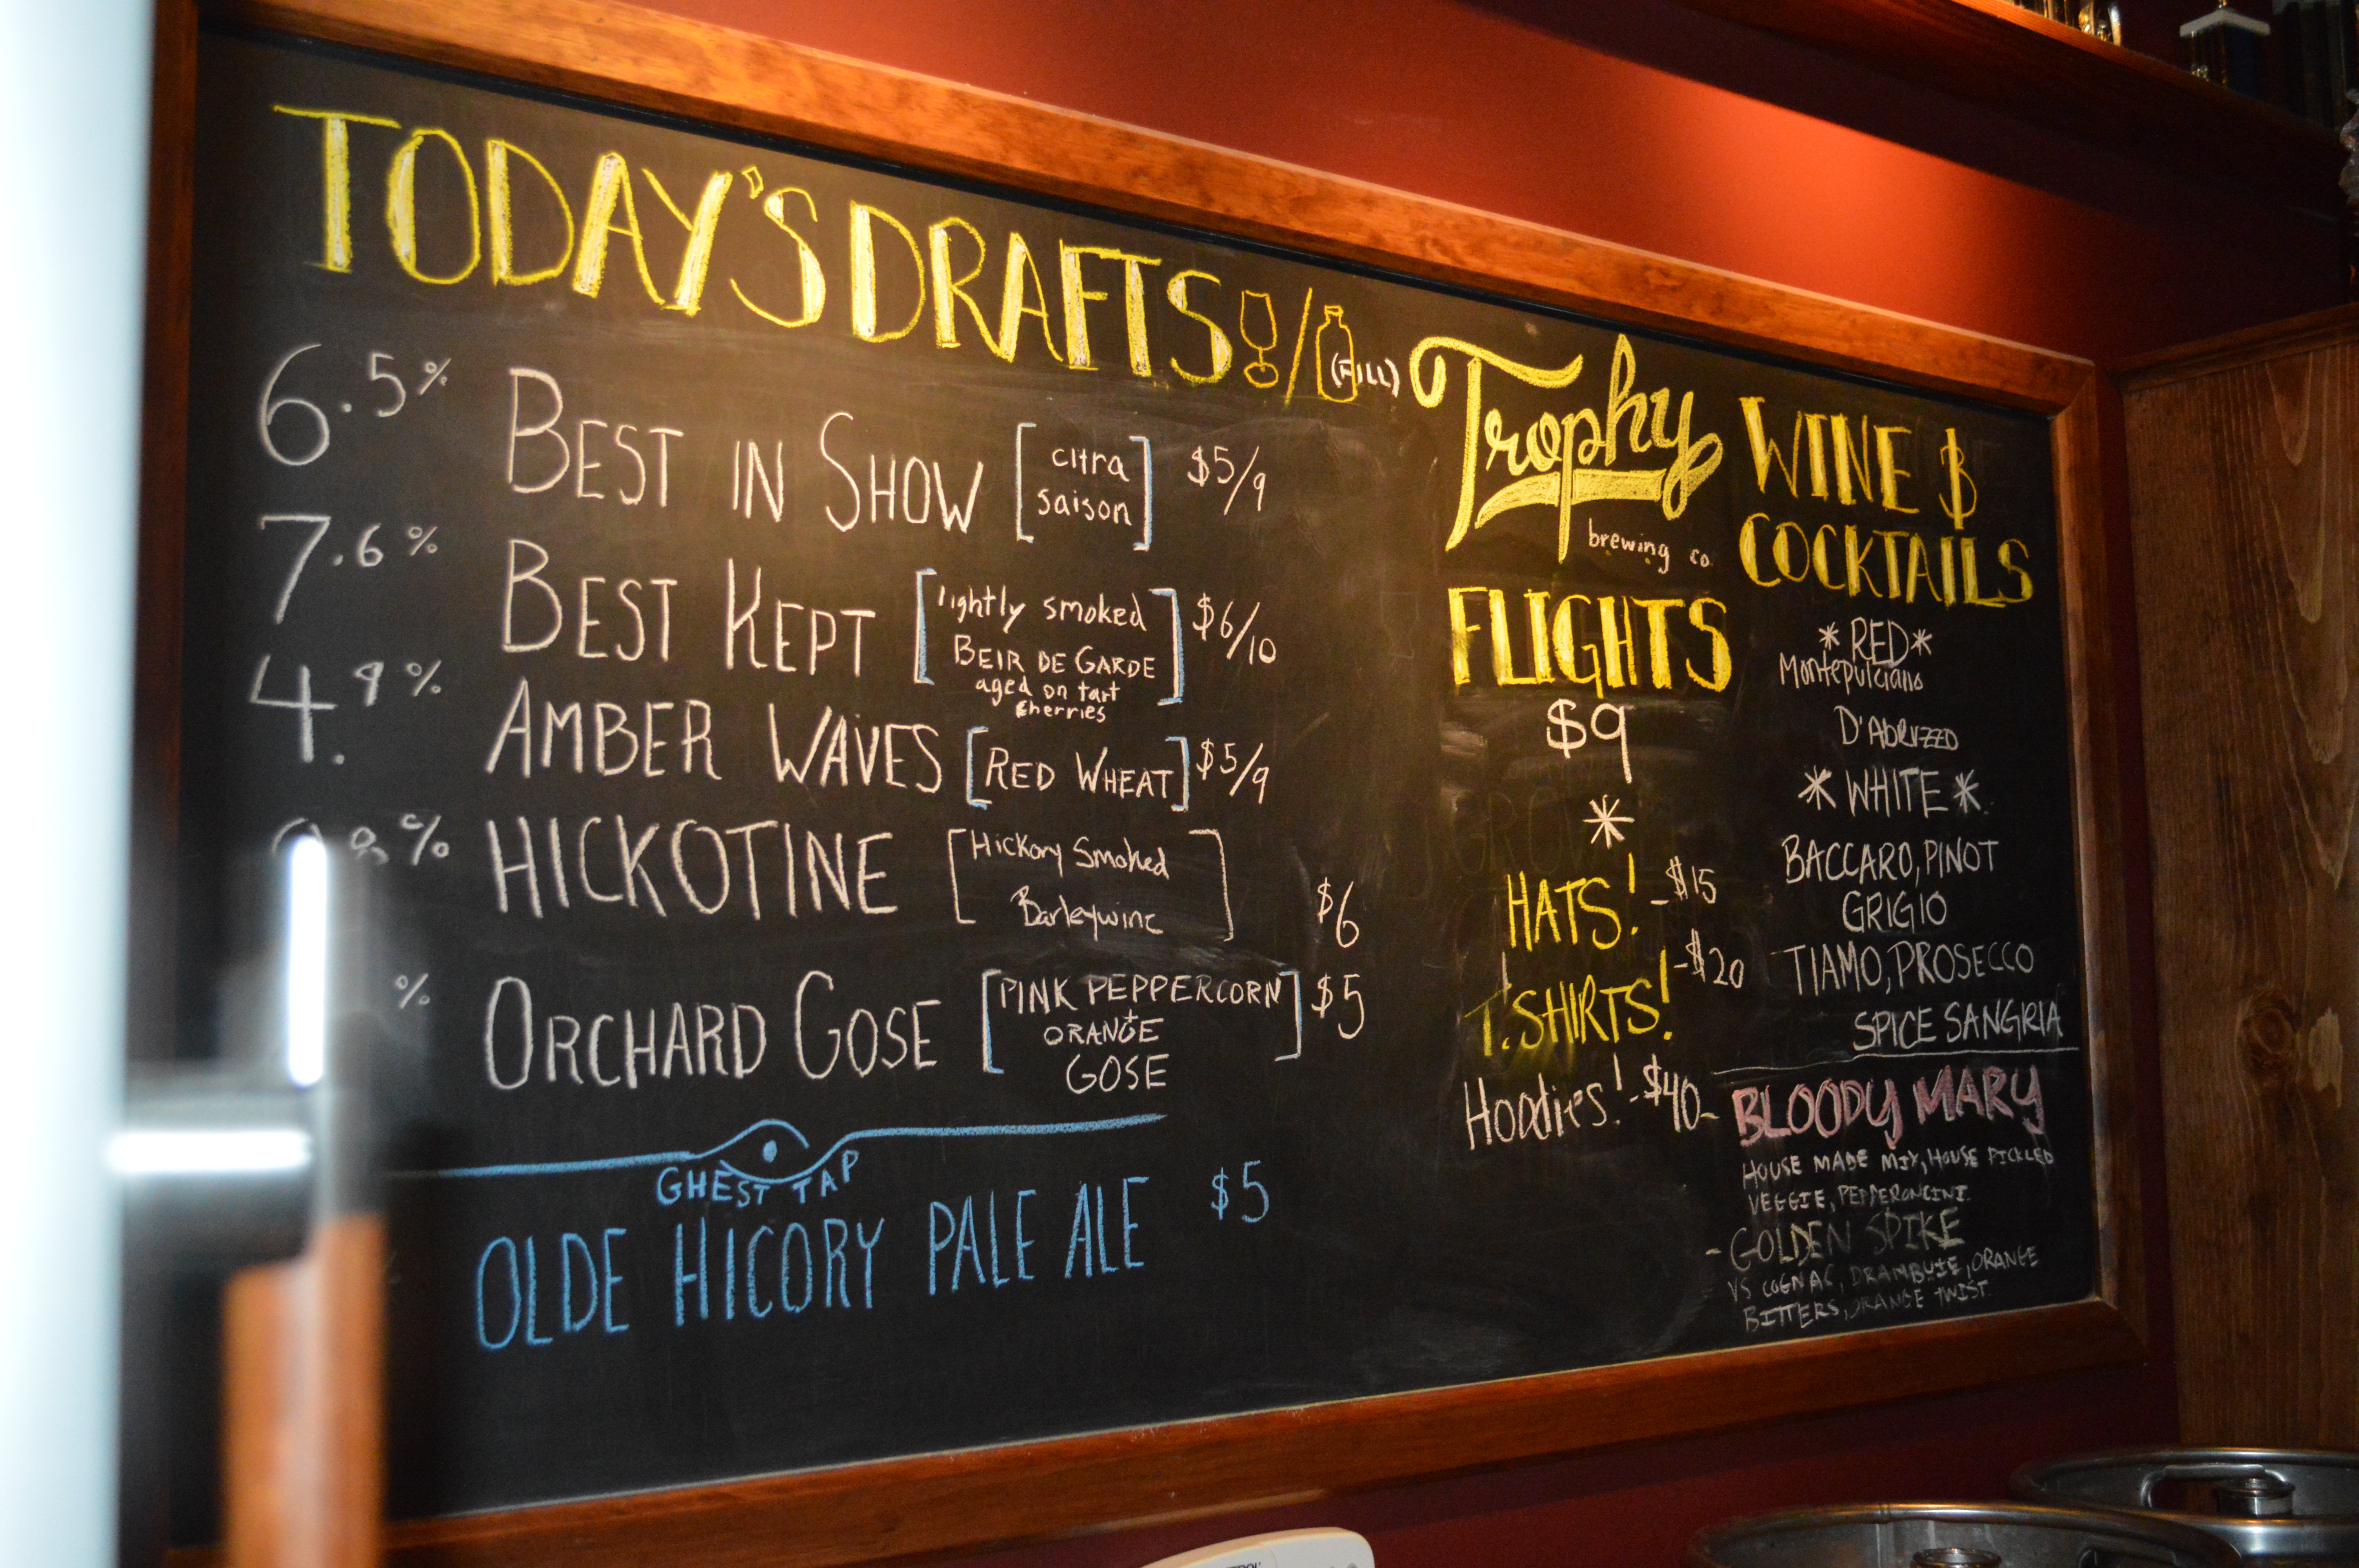 TODAY'S DRAFTS / (FILL)
6.5% BEST IN SHOW [citra saison] $5/9
7.6% BEST KEPT [lightly smoked BEIR DE GARDE aged on tart cherries] $6/10
4.9% AMBER WAVES [RED WHEAT] $5/9
% HICKOTINE [Hickory Smoked Barleywine] $6
% ORCHARD GOSE [PINK PEPPERCORN + ORANGE GOSE] $5
GHEST TAP
OLDE HICORY PALE ALE $5
Trophy
brewing co.
FLIGHTS
$9
*
HATS! -$15
T.SHIRTS! -$20
Hoodies! -$40-
WINE &
COCKTAILS
*RED*
Montepulciano
D'ABRUZZO
*WHITE*
BACCARO, PINOT
GRIGIO
TIAMO, PROSECCO
SPICE SANGRIA
BLOODY MARY
HOUSE MADE MIX, HOUSE PICKLED
VEGGIE, PEPPERONCINI.
-GOLDEN SPIKE
VS COGNAC, DRAMBUIE, ORANGE
BITTERS, ORANGE TWIST.